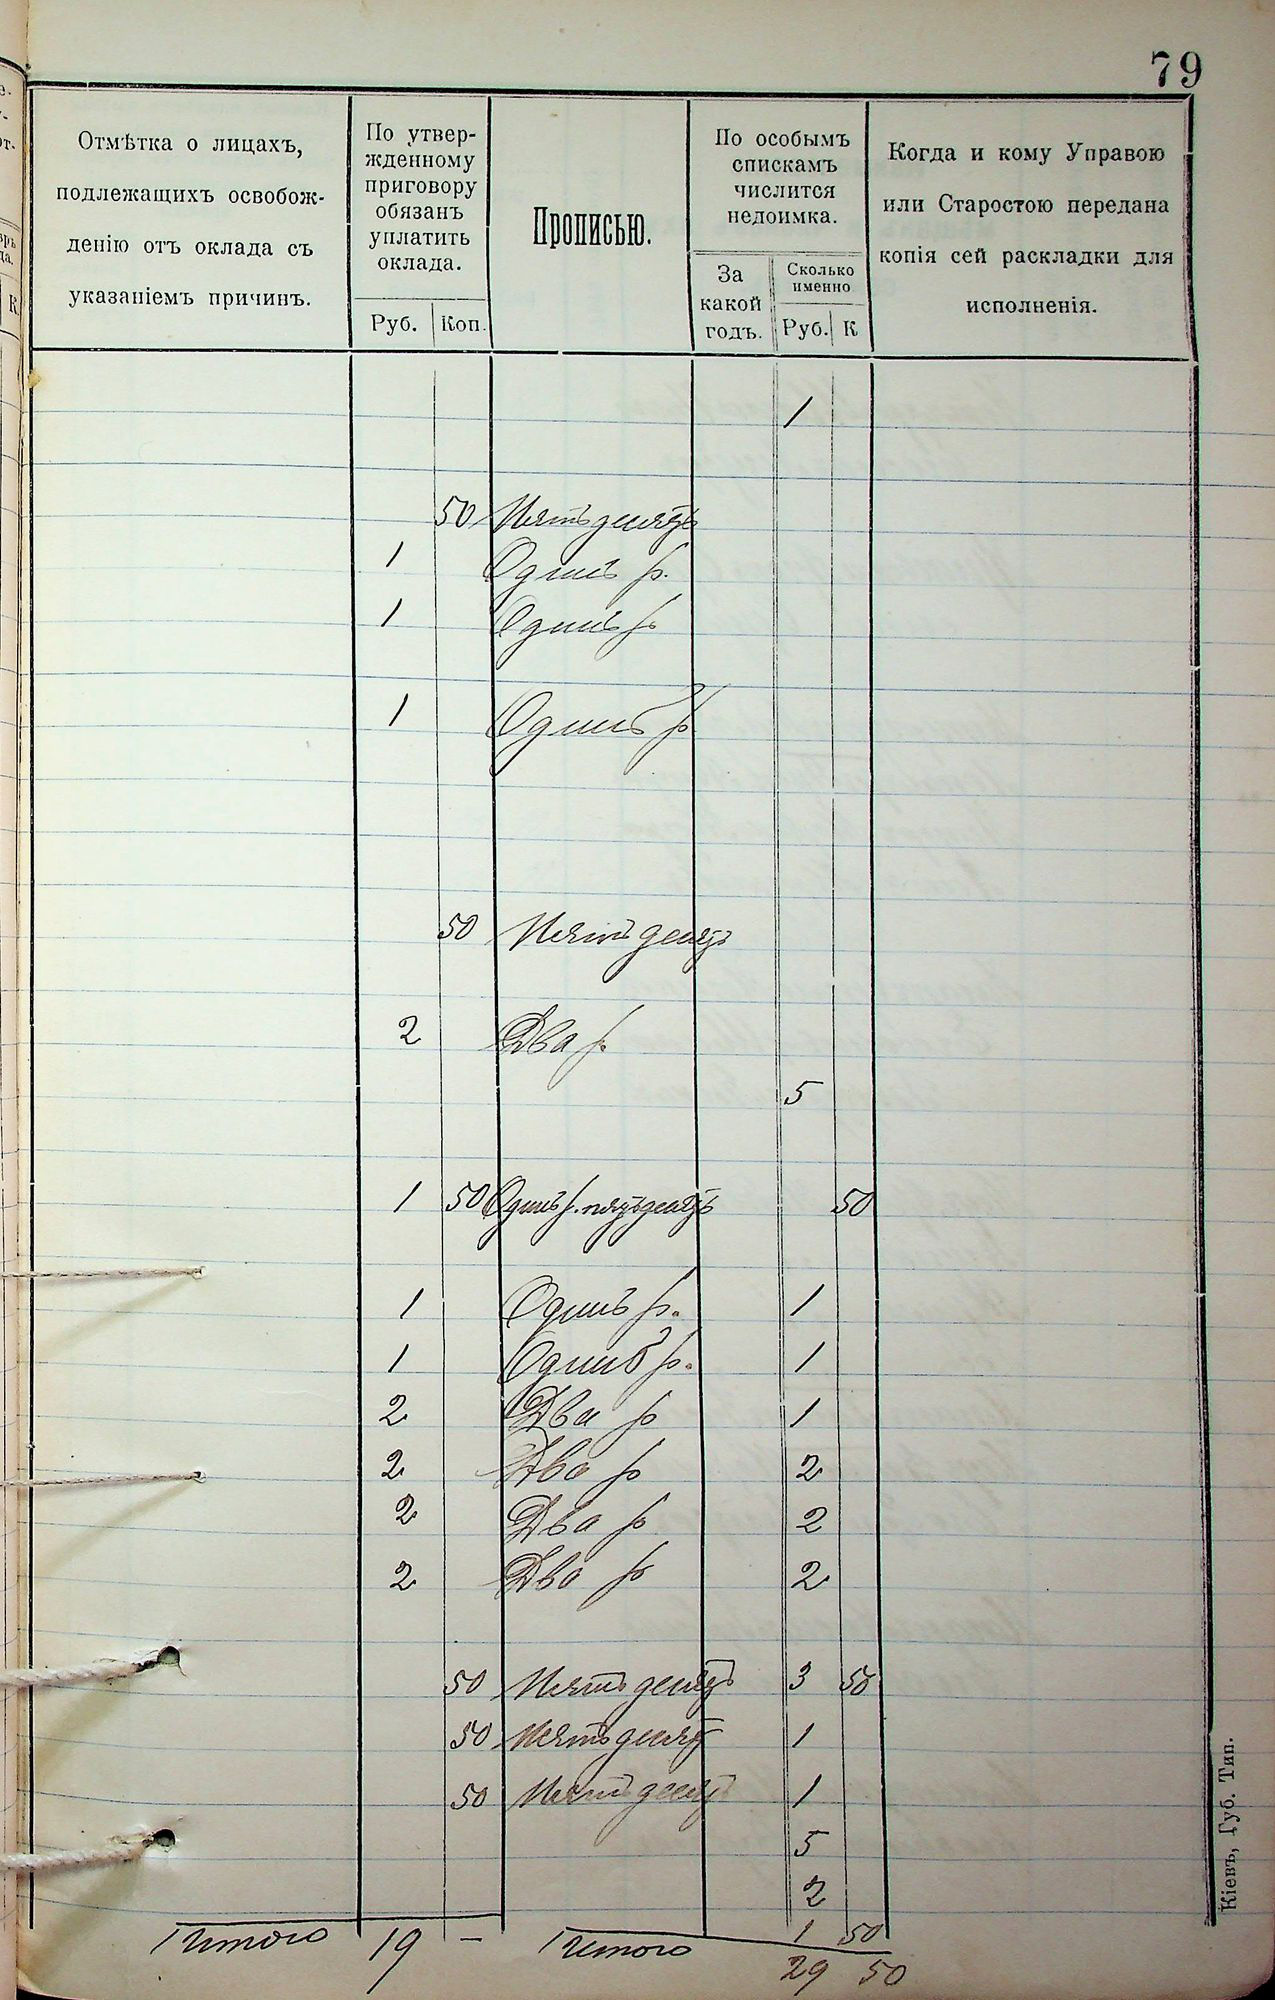 79
Отмѣтка о лицахъ,
подлежащихъ освобож-
денію отъ оклада съ
указаніемъ причинъ.
По утвер-
жденному
приговору
обязанъ
уплатить
оклада.
Руб. Коп.
Прописью.
По особымъ
спискамъ
числится
недоимка.
За
какой
годъ.
Сколько
именно
Руб. К
Когда и кому Управою
или Старостою передана
копія сей раскладки для
исполненія.
1
50 Пятьдесятъ
1 Одинъ р.
1 Одинъ р
1 Одинъ р
50 Пятьдесятъ
2 Два р
5
1 50 Одинъ р. пятьдесятъ 50
1 Одинъ р. 1
1 Одинъ р. 1
2 Два р 1
2 Два р 2
2 Два р 2
2 Два р 2
50 Пятьдесятъ 3 50
50 Пятьдесятъ 1
50 Пятьдесятъ 1
5
2
1 50
Итого 19 — Итого 29 50
Кіевъ, Губ. Тип.